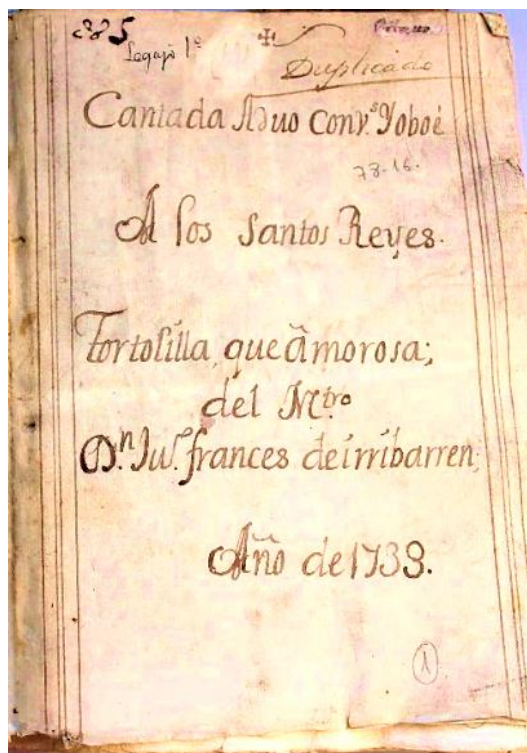 5
Legajo 1º
Duplicado
Cantada Aduo con v.s Yoboé
78-16.
A los Santos Reyes.
Tortolilla, que amorosa;
del Mtro
Dn. Jun. frances deirribarren;
Año de 1738.
1